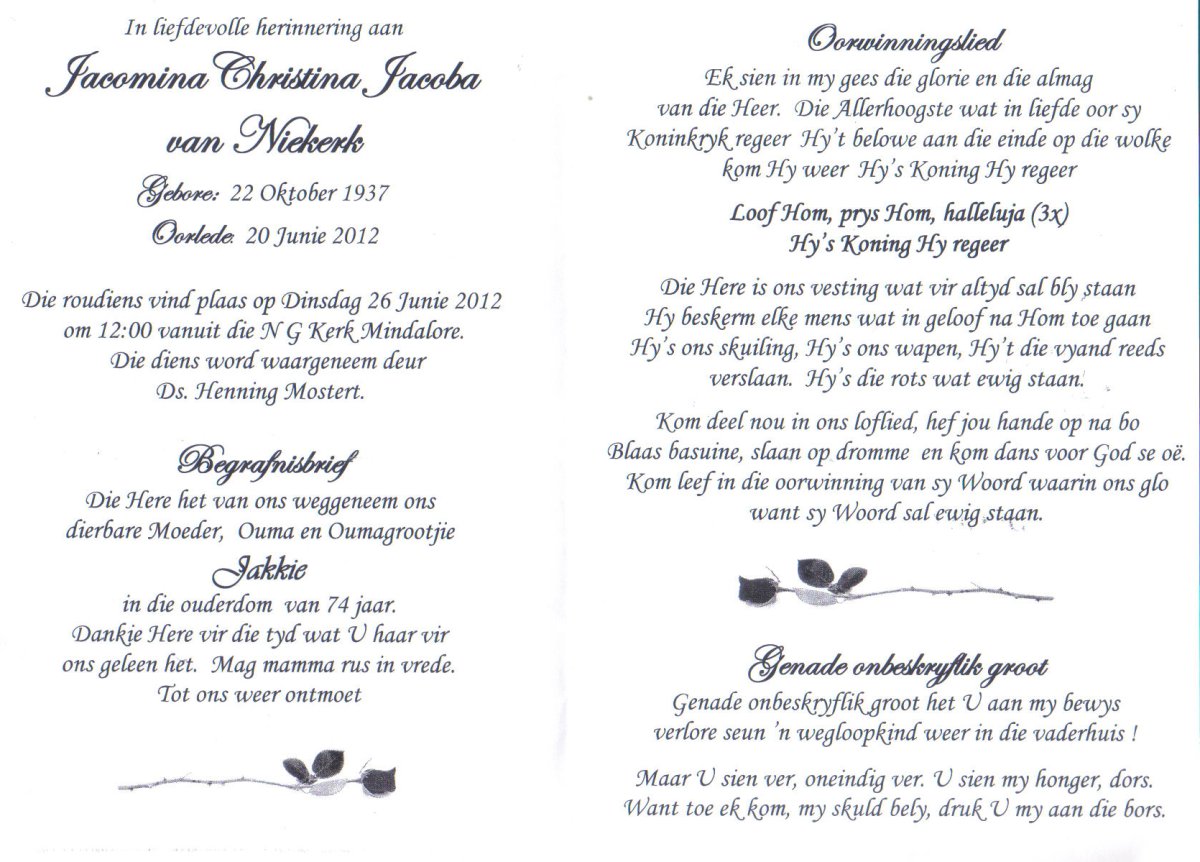 In liefdevolle herinnering aan
Jacomina Christina Jacoba
van Niekerk
Gebore: 22 Oktober 1937
Oorlede: 20 Junie 2012
Die roudiens vind plaas op Dinsdag 26 Junie 2012
om 12:00 vanuit die N G Kerk Mindalore.
Die diens word waargeneem deur
Ds. Henning Mostert.
Begrafnisbrief
Die Here het van ons weggeneem ons
dierbare Moeder, Ouma en Oumagrootjie
Jakkie
in die ouderdom van 74 jaar.
Dankie Here vir die tyd wat U haar vir
ons geleen het. Mag mamma rus in vrede.
Tot ons weer ontmoet
Oorwinningslied
Ek sien in my gees die glorie en die almag
van die Heer. Die Allerhoogste wat in liefde oor sy
Koninkryk regeer Hy't belowe aan die einde op die wolke
kom Hy weer Hy's Koning Hy regeer
Loof Hom, prys Hom, halleluja (3x)
Hy's Koning Hy regeer
Die Here is ons vesting wat vir altyd sal bly staan
Hy beskerm elke mens wat in geloof na Hom toe gaan
Hy's ons skuiling, Hy's ons wapen, Hy't die vyand reeds
verslaan. Hy's die rots wat ewig staan.
Kom deel nou in ons loflied, hef jou hande op na bo
Blaas basuine, slaan op dromme en kom dans voor God se oë.
Kom leef in die oorwinning van sy Woord waarin ons glo
want sy Woord sal ewig staan.
Genade onbeskryflik groot
Genade onbeskryflik groot het U aan my bewys
verlore seun 'n wegloopkind weer in die vaderhuis !
Maar U sien ver, oneindig ver. U sien my honger, dors.
Want toe ek kom, my skuld bely, druk U my aan die bors.